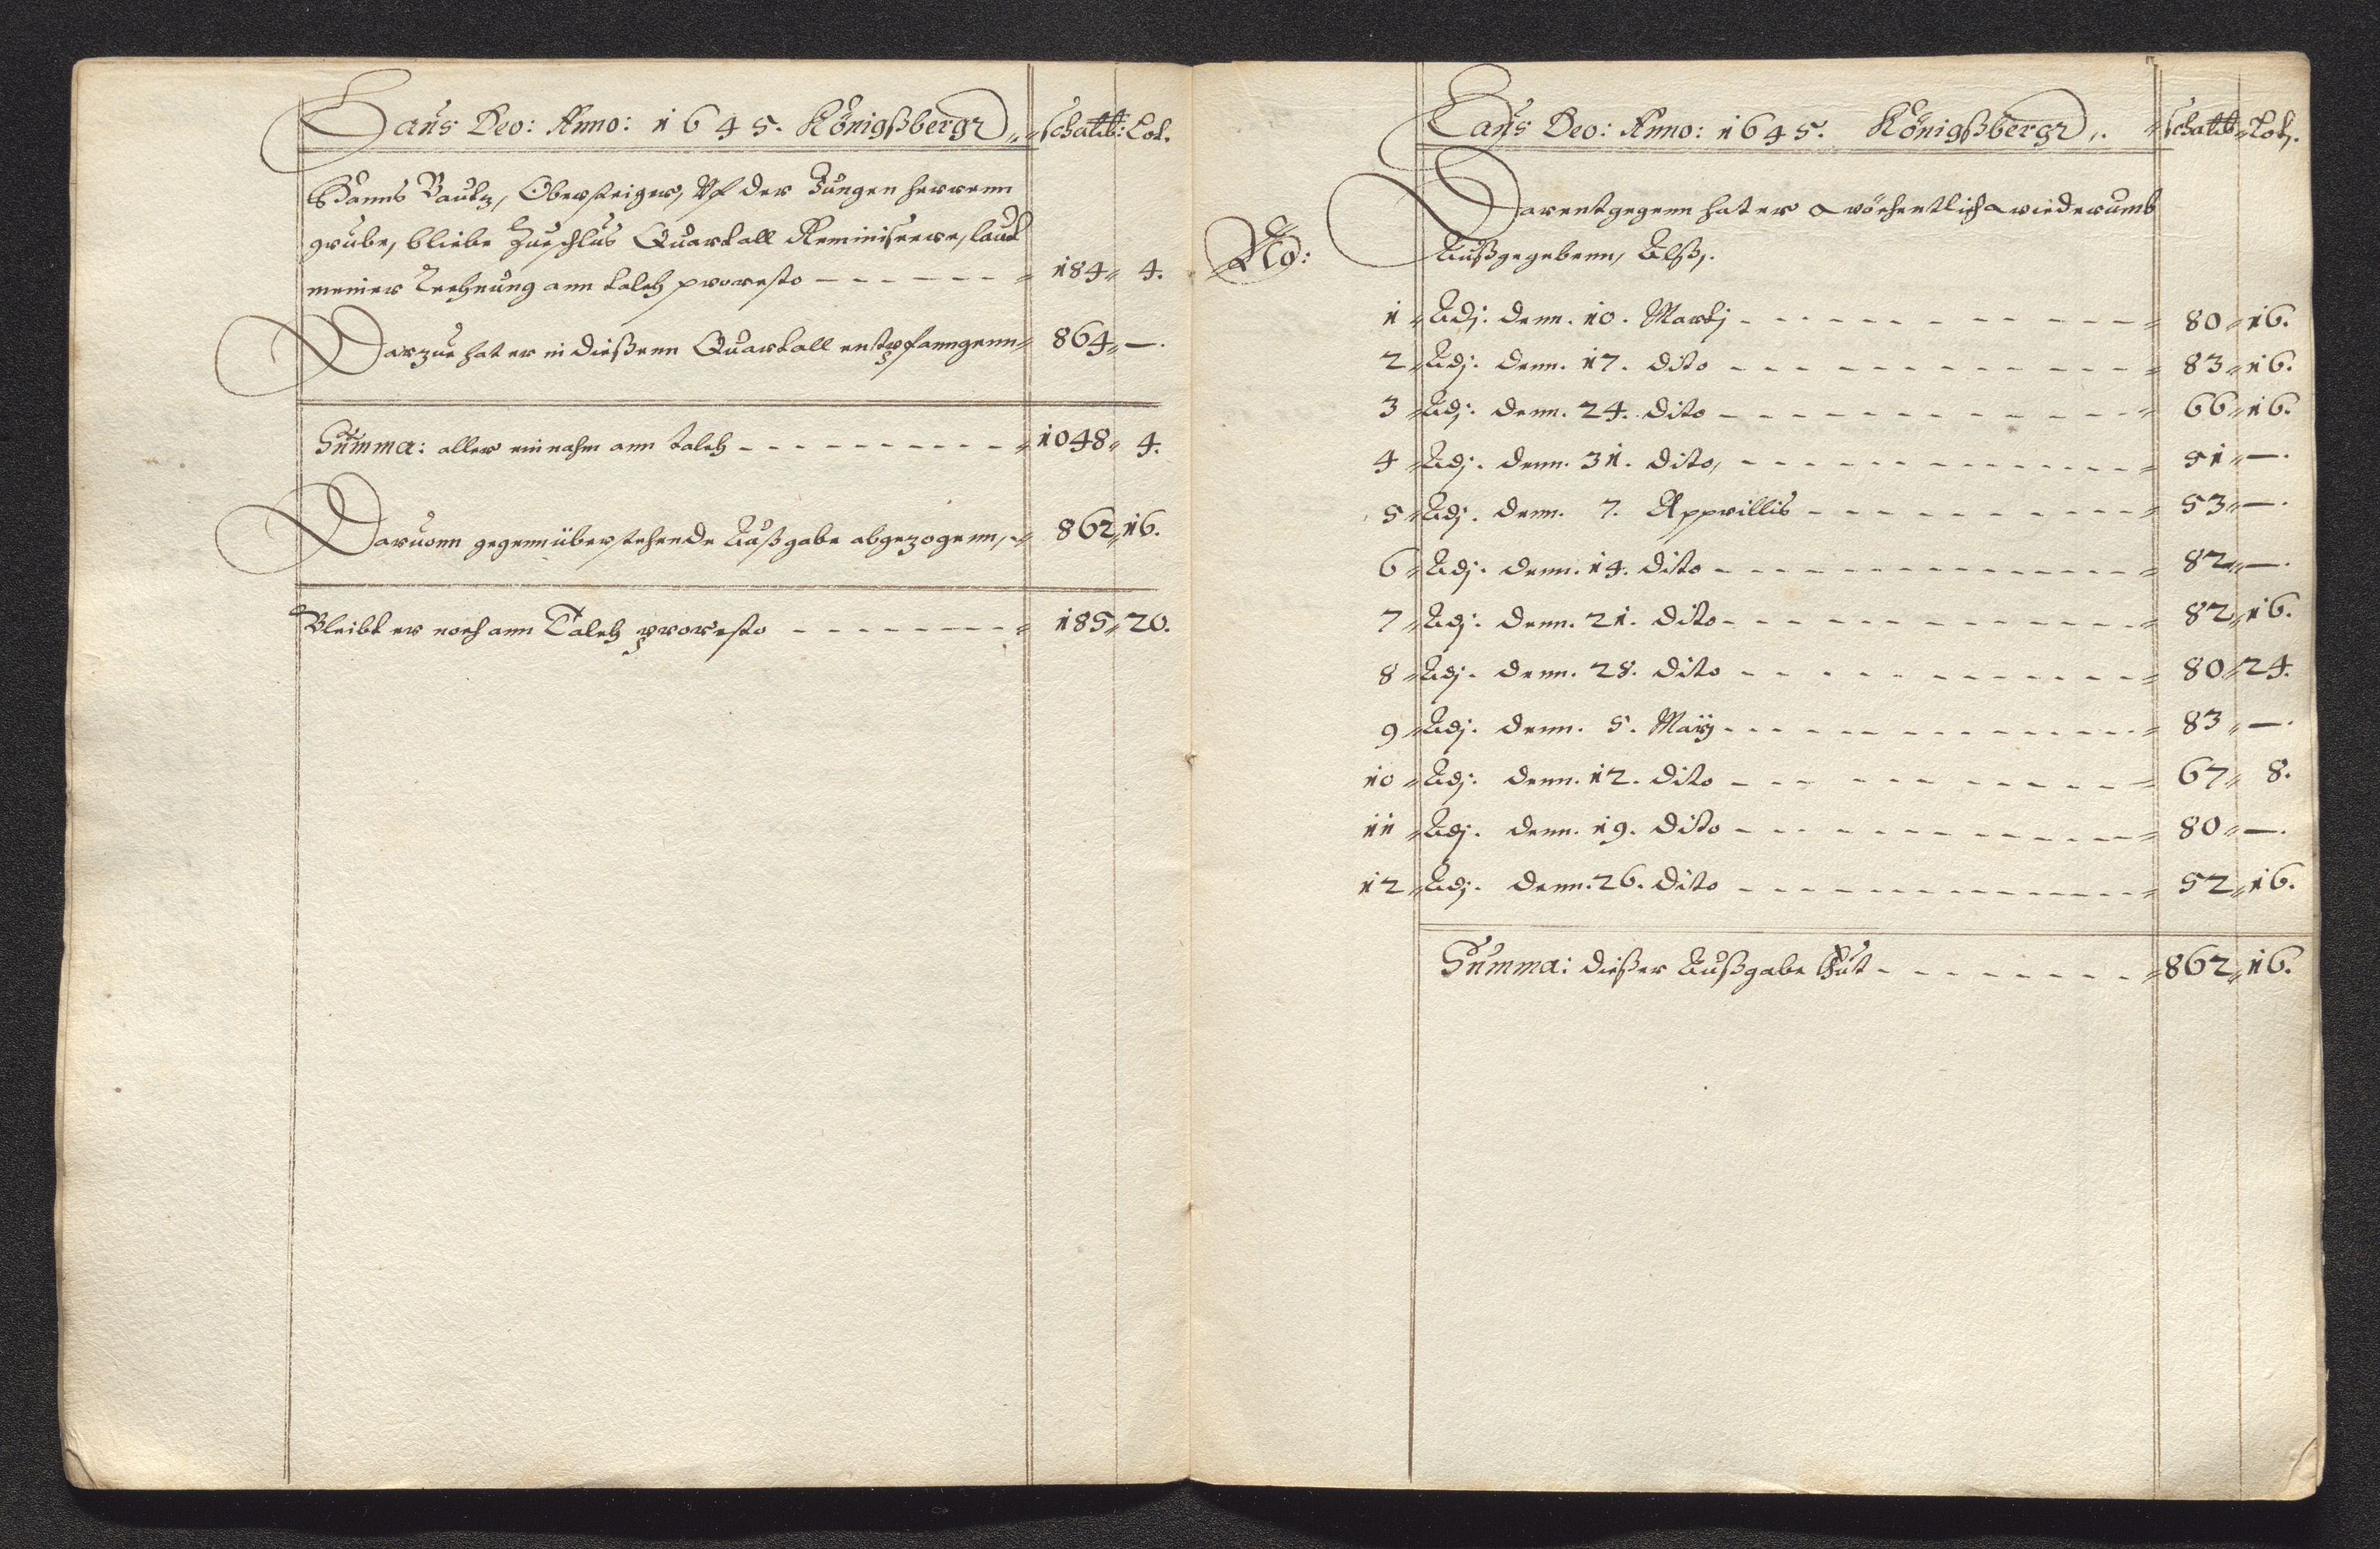 Laus Deo: Anno: 1645. Königßbergk schal℔: Lot.
Hanns Bautz, Obersteiger, Vf der Jungen herrenn
grube, bliebe Zueschlus Quartall Reminiscere, laut
meiner Rechnung ann talch proresto - - - - - - 184 " 4.
Darzue hat er in dießenn Quartall entpfanngenn 864 " —.
Summa: aller einnahm ann talch - - - - - - - - - - 1048 " 4.
Daruonn gegennüberstehende Außgabe abgezogenn, 862 " 16.
Bleibt er noch ann Talch proresto - - - - - - - - 185 " 20.
Laus Deo: Anno: 1645. Königßbergk schal℔ " Lot.
Darentgegenn hat er wöchentlich wiederumb
No: Außgegebenn, Alß,
1 " Adj. denn. 10. Martj - - - - - - - - - - 80 " 16.
2 " Adj. denn. 17. dito - - - - - - - - - - 83 " 16.
3 " Adj. denn. 24. dito - - - - - - - - - - 66 " 16.
4 " Adj. denn. 31. dito, - - - - - - - - - - 51 " —.
5 " Adj. denn. 7. Apprillis - - - - - - - - - - 53 " —.
6 " Adj. denn. 14. dito - - - - - - - - - - 82 " —.
7 " Adj. denn. 21. dito - - - - - - - - - - 82 " 16.
8 " Adj. denn. 28. dito - - - - - - - - - - 80 " 24.
9 " Adj. denn. 5. Maÿ - - - - - - - - - - 83 " —.
10 " Adj. denn. 12. dito - - - - - - - - - - 67 " 8.
11 " Adj. denn. 19. dito - - - - - - - - - - 80 " —.
12 " Adj. denn. 26. dito - - - - - - - - - - 52 " 16.
Summa: dießer Außgabe thut - - - - - - - - 862 " 16.